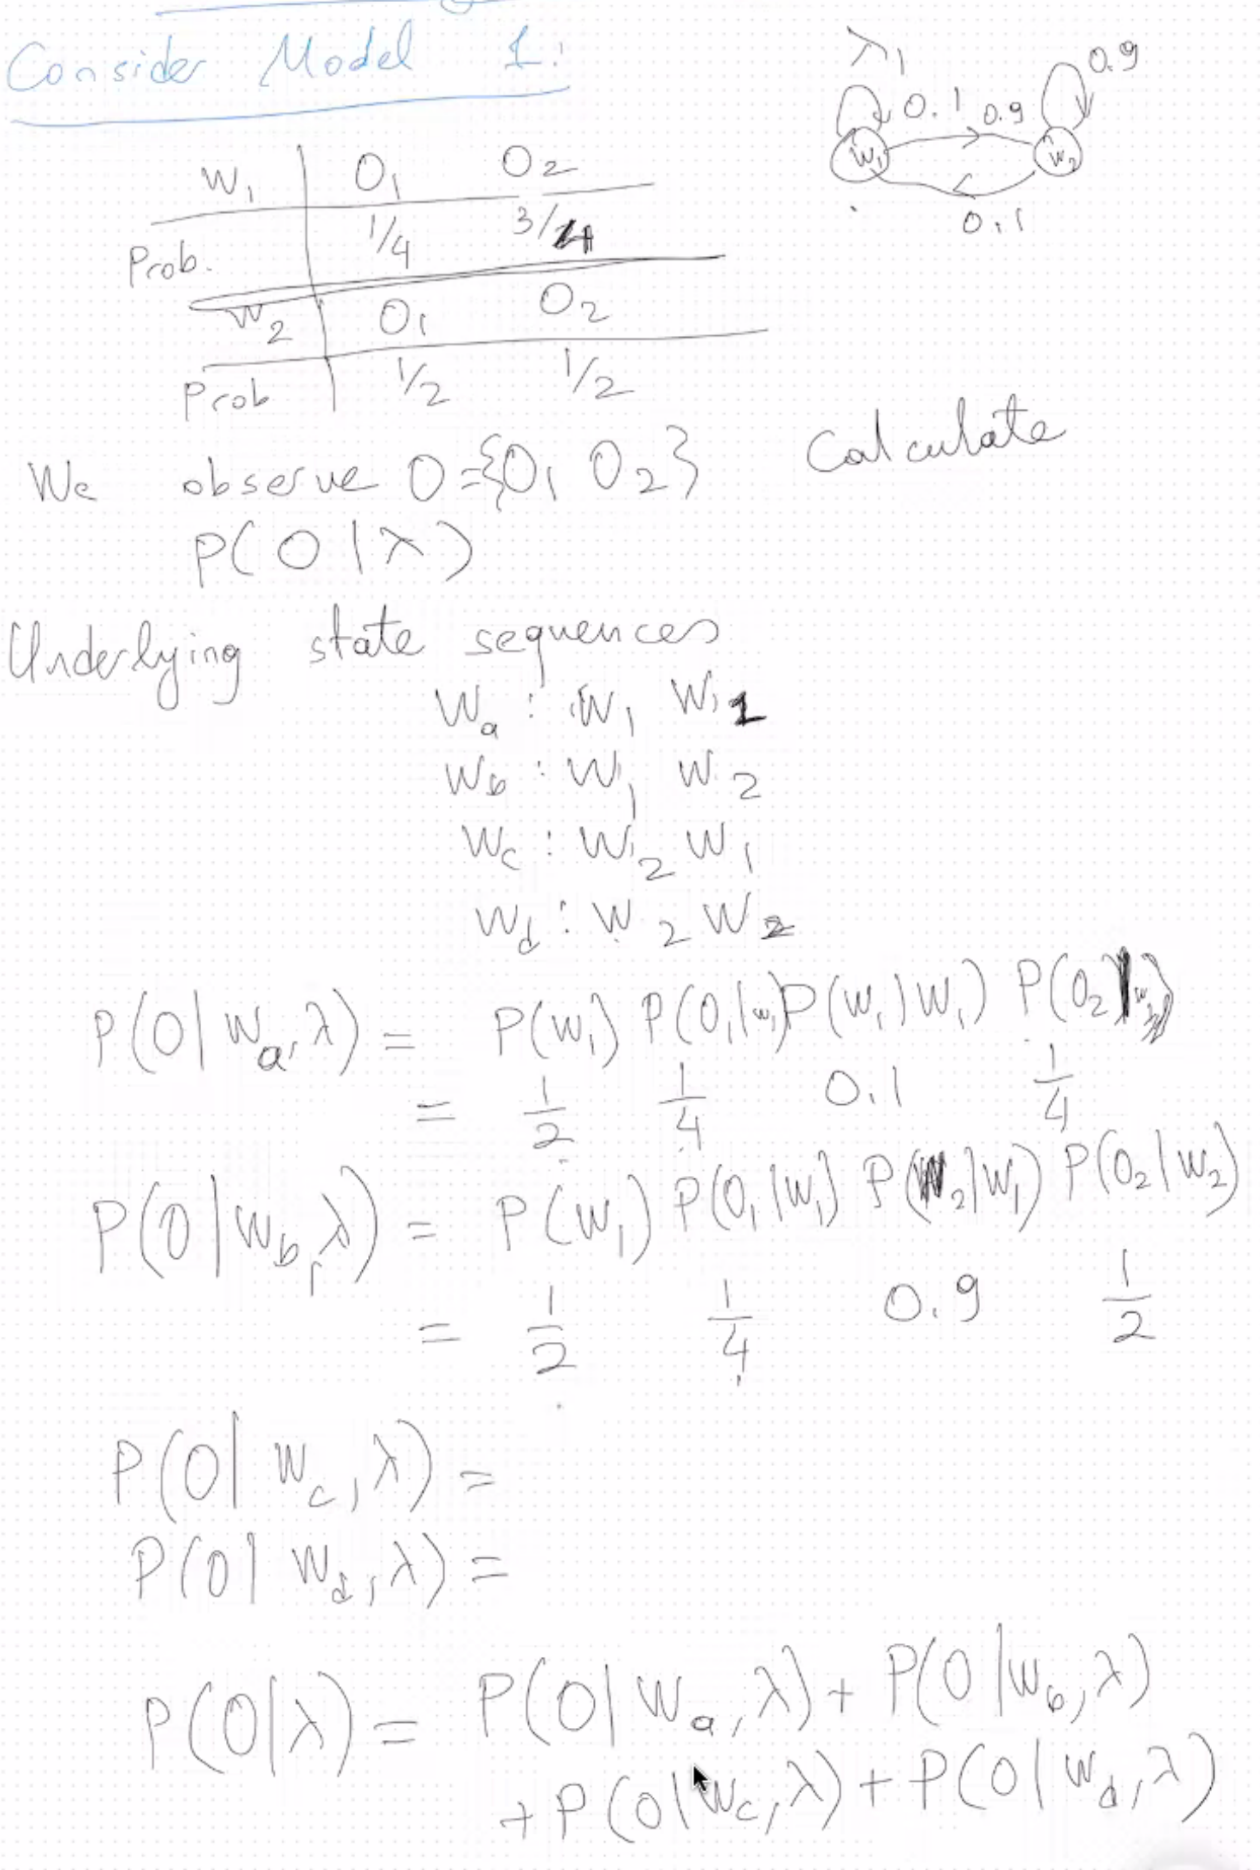 Consider Model 1:
λ1
0.1 0.9 0.9
W1 W2
0.1
W1 O1 O2
Prob. 1/4 3/4
W2 O1 O2
Prob 1/2 1/2
We observe O={O1 O2} Calculate
P(O|λ)
Underlying state sequences
Wa : W1 W1
Wb : W1 W2
Wc : W2 W1
Wd : W2 W2
P(O|Wa,λ) = P(W1) P(O1|W1) P(W1|W1) P(O2|W1)
= 1/2 1/4 0.1 1/4
P(O|Wb,λ) = P(W1) P(O1|W1) P(W2|W1) P(O2|W2)
= 1/2 1/4 0.9 1/2
P(O|Wc,λ) =
P(O|Wd,λ) =
P(O|λ) = P(O|Wa,λ) + P(O|Wb,λ)
+ P(O|Wc,λ) + P(O|Wd,λ)